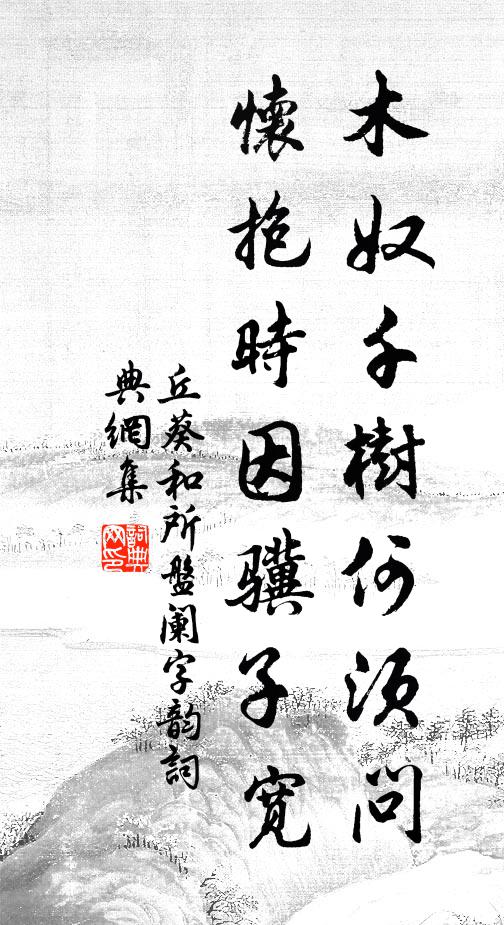 木奴千樹何須問
懷抱時因驥子寬
丘葵和所盤闌字韵詞
典網集
詞典
网印